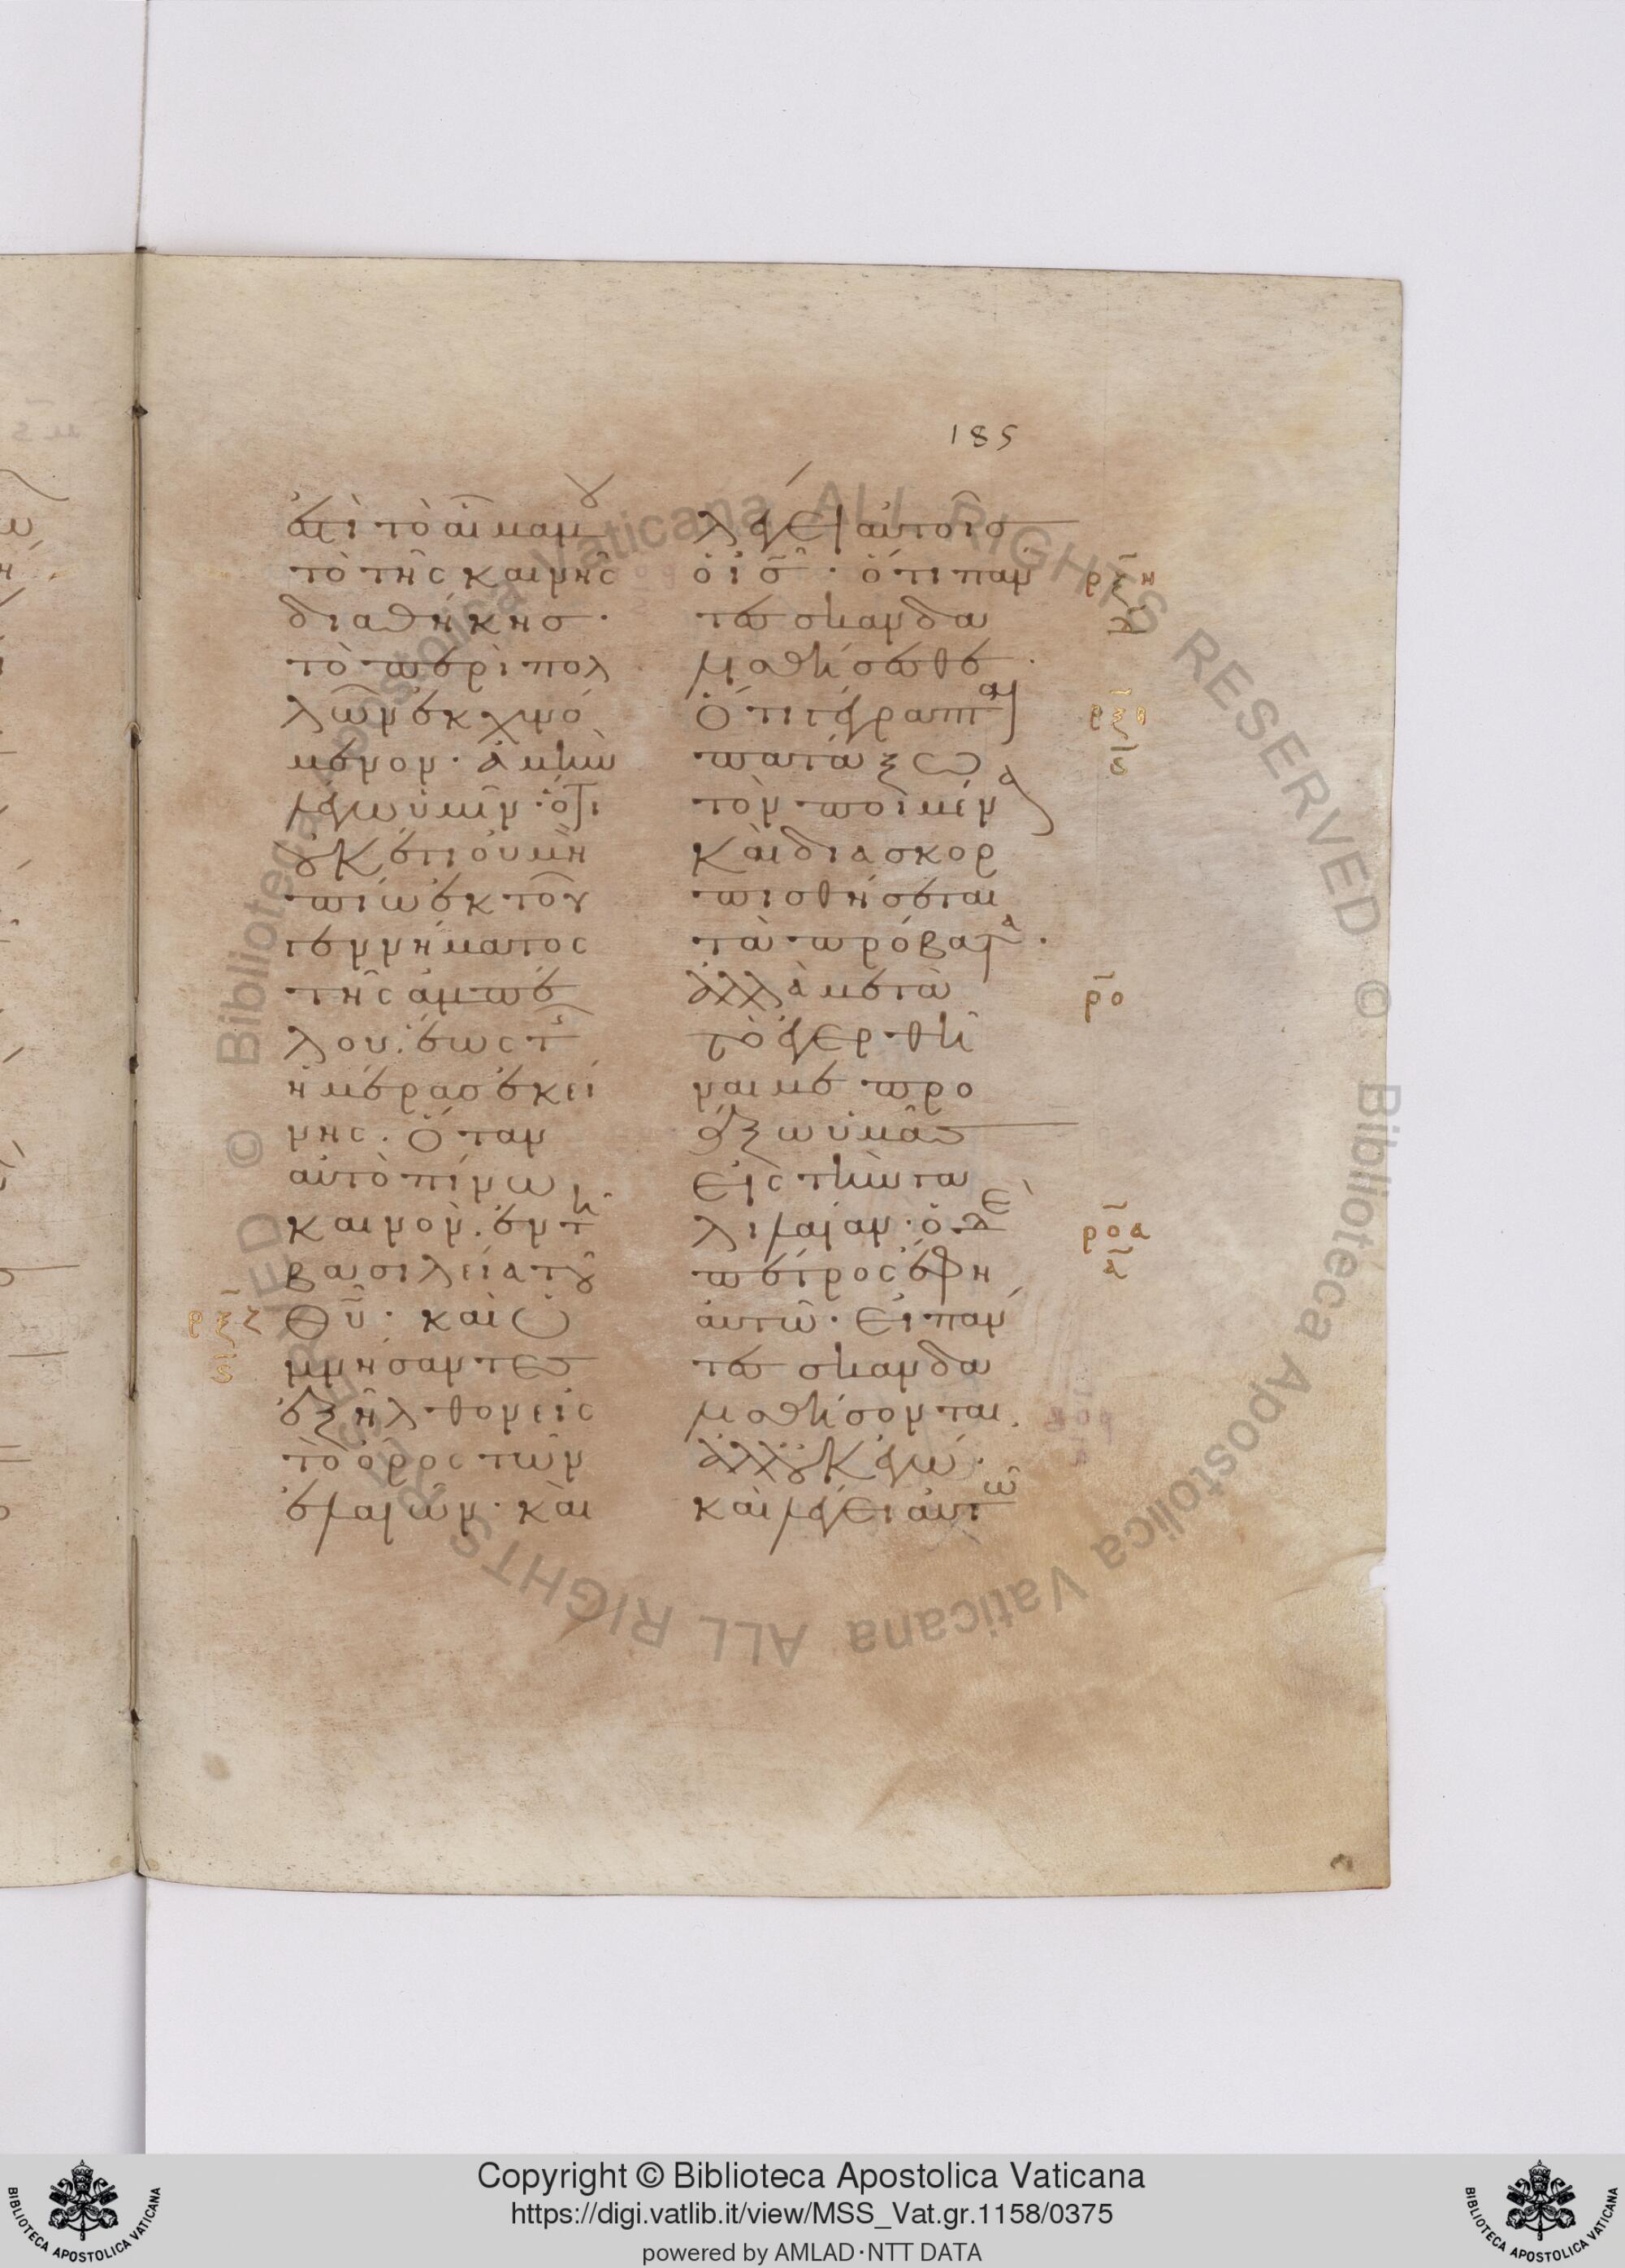 185
ἐστὶ τὸ αἷμα μου
τὸ τῆς καινῆς
διαθήκης·
τὸ περὶ πολ
λῶν ἐκχυνό
μενον· ἀμὴν
λέγω ὑμῖν· ὅτι
οὐκέτι οὐ μὴ
πίω ἐκ τοῦ
γεννήματος
τῆς ἀμπέ
λου. ἕως τ
ἡμέρας ἐκεί
νης. ὅταν
αὐτὸ πίνω
καινὸν. ἐν τῆ
βασιλεία τοῦ
θυ· καὶ ὑ
μνήσαντες
ἐξῆλθον εἰς
τὸ ὄρος τῶν
ἐλαιῶν· καὶ
λέγει αὐτοῖς
ὁ ισ· ὅτι πάν
τες σκανδα
λισθήσεσθε·
Ὅτι γέγραπται
πατάξω
τὸν ποιμένα
καὶ διασκορ
πισθήσεται
τὰ πρόβατα·
ἀλλὰ μετὰ
τὸ ἐγερθῆ
ναι με προ
άξω ὑμᾶς
εἰς τὴν γα
λιλαίαν· ὁ δὲ
πέτρος ἔφη
αὐτῶ· εἰ πάν
τες σκανδα
λισθήσονται,
ἀλλ' οὐκ ἐγώ·
καὶ λέγει αὐτῶ
ρξζ
ς
ρξη
δ
ρξθ
ς
ρο
ροα
α
© Biblioteca Apostolica Vaticana ALL RIGHTS RESERVED © Biblioteca Apostolica Vaticana ALL RIGHTS RESERVED
Copyright © Biblioteca Apostolica Vaticana
https://digi.vatlib.it/view/MSS_Vat.gr.1158/0375
powered by AMLAD·NTT DATA
BIBLIOTECA APOSTOLICA VATICANA
BIBLIOTECA APOSTOLICA VATICANA